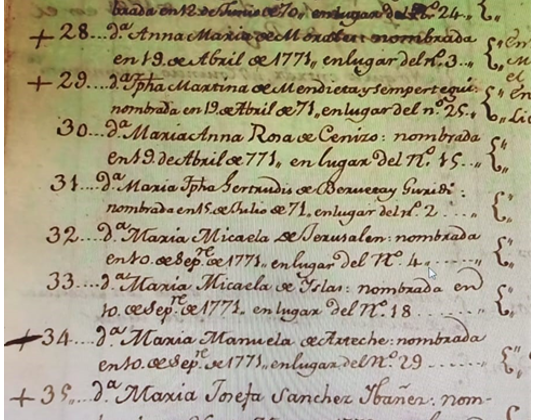 brada en 12 de Junio de 70,, en lugar del Nº. 24..
+ 28...d.ª Anna Maria de Moratu: nombrada
en 19. de Abril de 1771,, en lugar del nº. 3...
+ 29...d.ª Jpha Martina de Mendieta y sempertegui:
nombrada en 19. de Abril de 71,, en lugar del nº. 25..
30...d.ª Maria Anna Rosa de Cenizo: nombrada
en 19. de Abril de 771,, en lugar del Nº. 15...
31....d.ª Maria Jpha Gertrudis de Berueta y Guridi:
nombrada en 15. de Julio de 71,, en lugar del nº. 2.....
32....d.ª Maria Micaela de Jerusalen: nombrada
en 10. de Sep.re de 1771,, en lugar del Nº. 4,,........
33....d.ª Maria Micaela de Yslas: nombrada en
10. de Sep.re de 1771,, en lugar del Nº. 18.......
+ 34....d.ª Maria Manuela de Arteche: nombrada
en 10. de Sep.re de 1771,, en lugar del Nº. 29.....
+ 35,..d.ª Maria Josefa Sanchez Ybañez: nom-